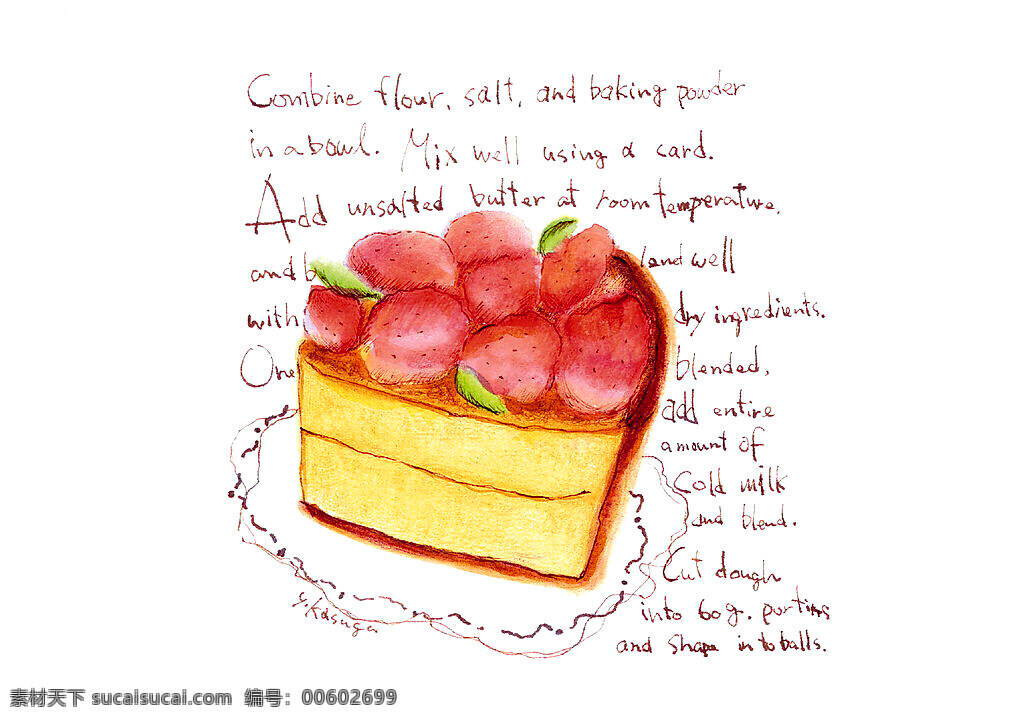 Combine flour, salt, and baking powder
in a bowl. Mix well using a card.
Add unsalted butter at room temperature,
and b land well
with dry ingredients.
One blended,
add entire
amount of
Cold milk
and blend.
Cut dough
into 60g. portins
and shape in to balls.
y.Kasuga
素材天下 sucaisucai.com 编号：00602699